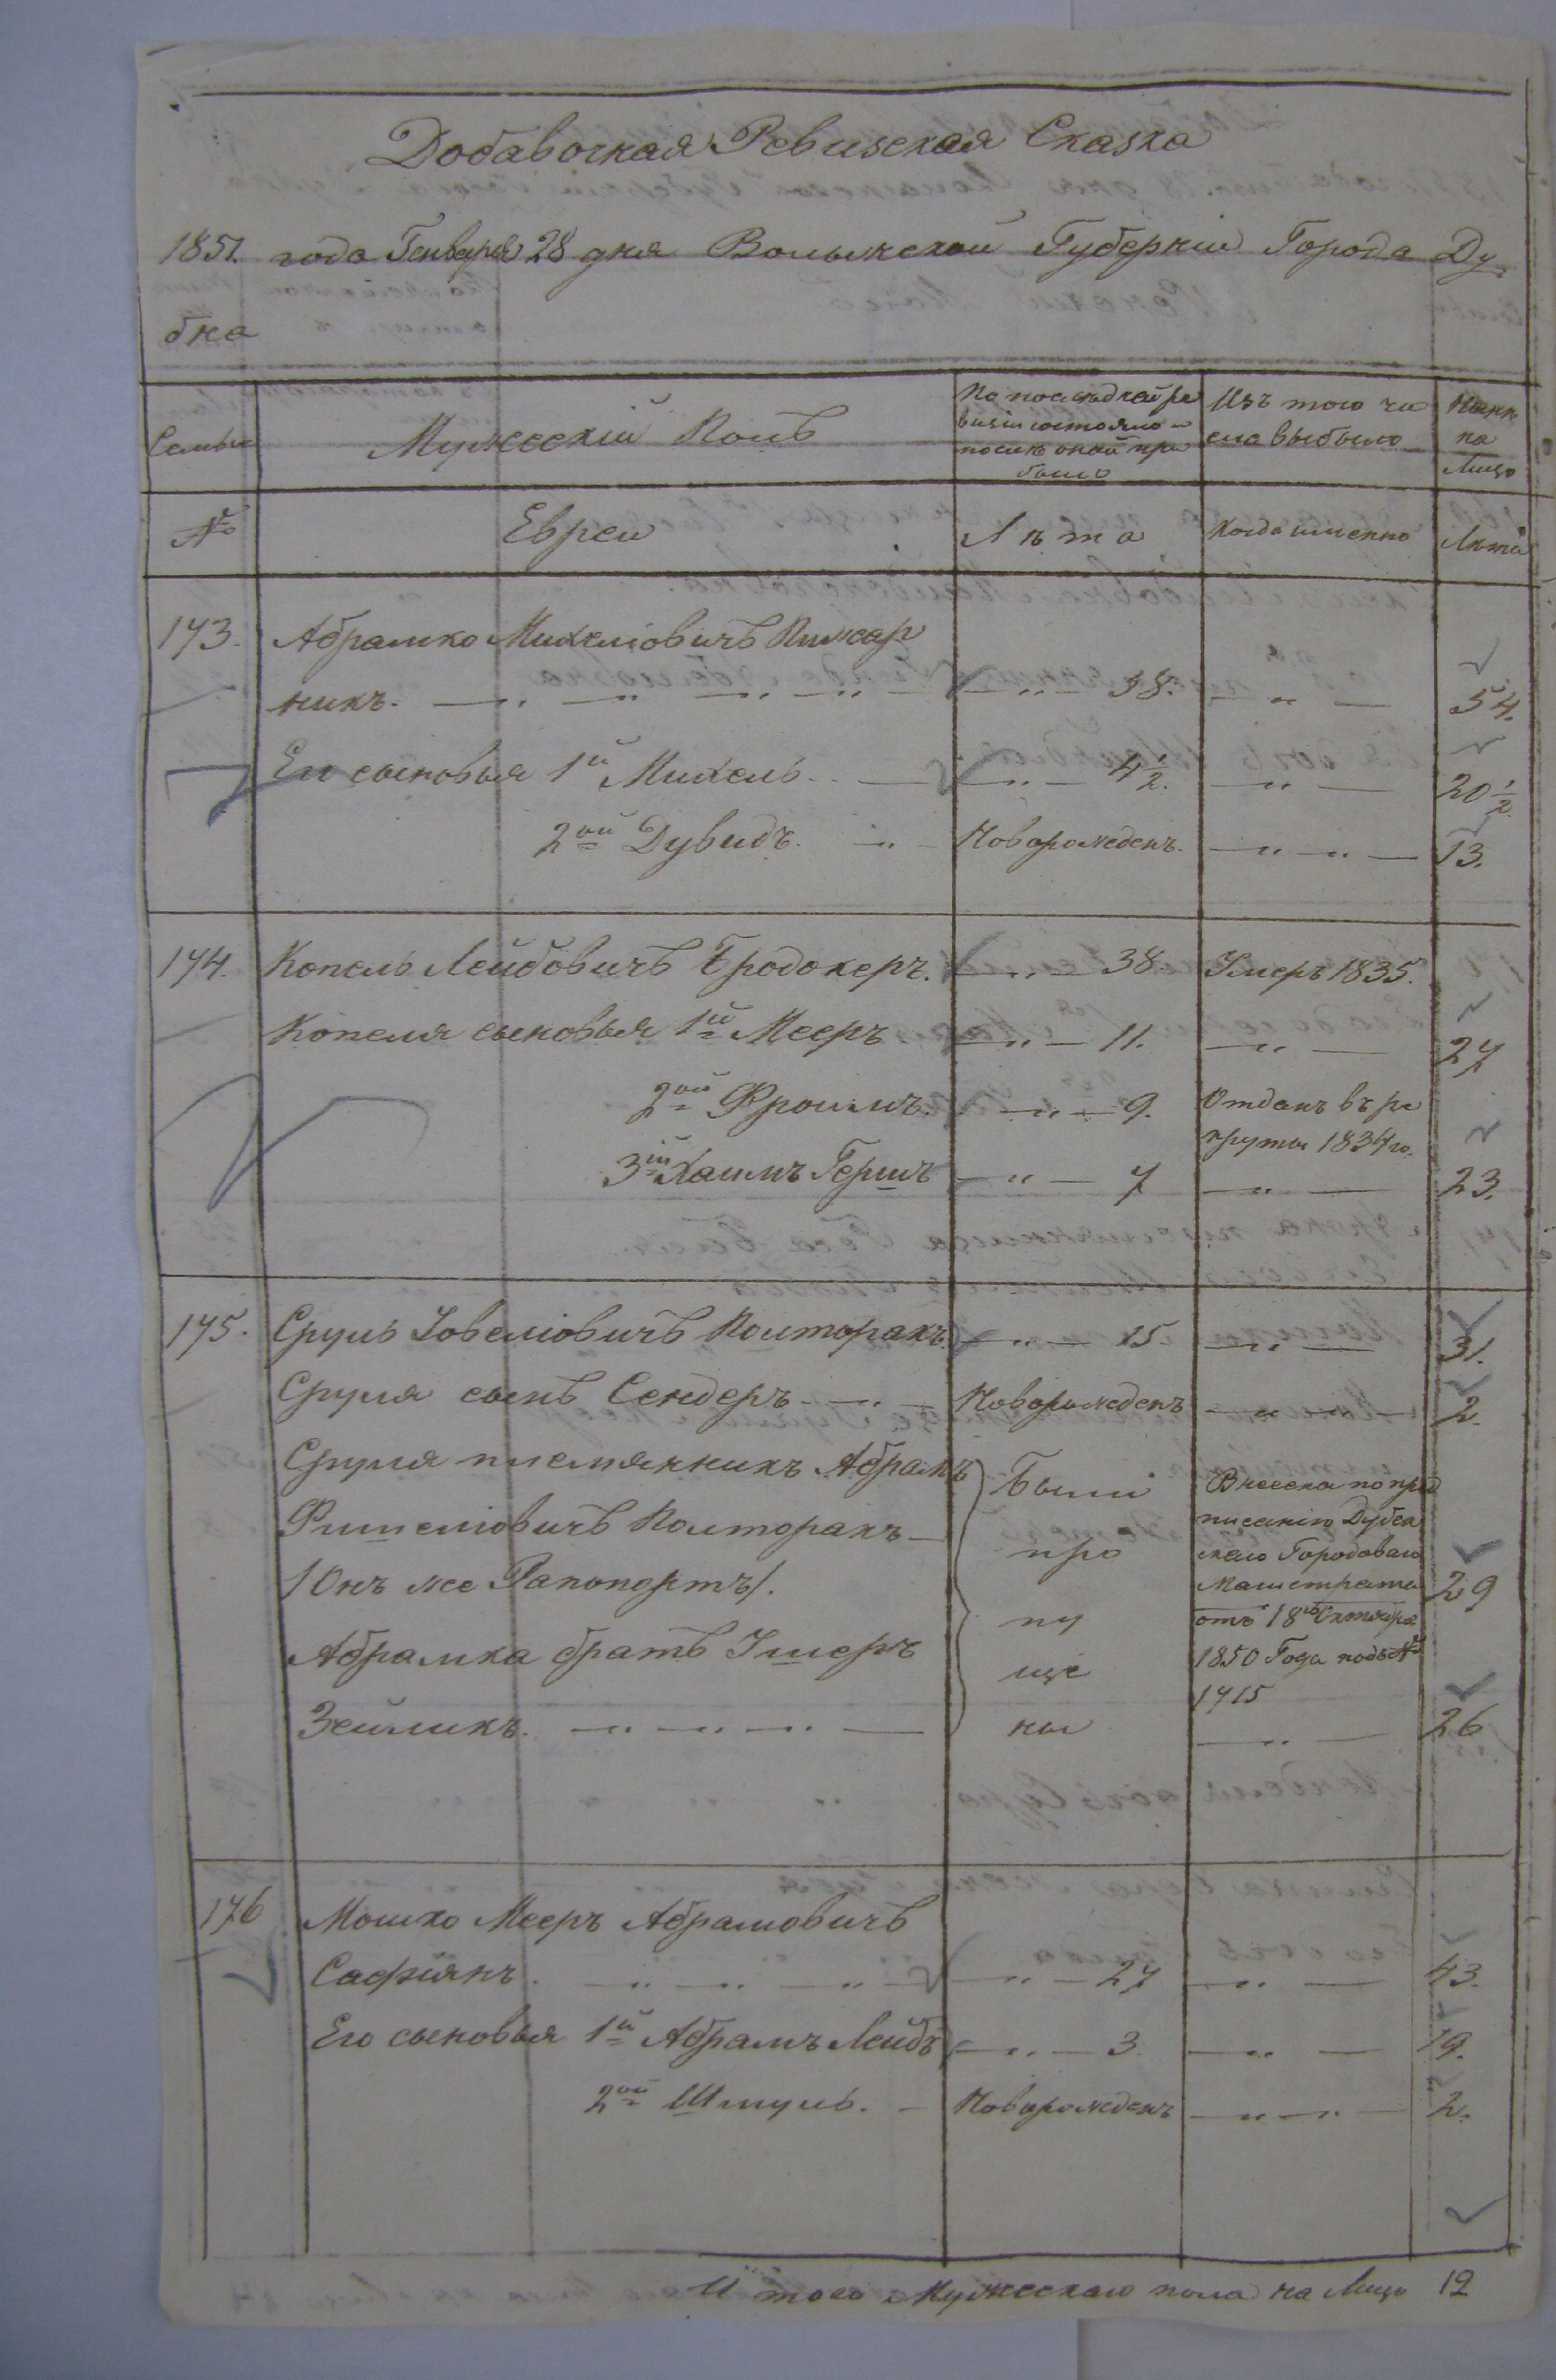 Добавочная Ревизская Сказка
1851. года Генваря 28 дня Волынской Губерніи Города Ду-
бна
Семьи
Мужескій Полъ
По последней ре
визіи состояло и
после оной при
было
Изъ того чи
сла выбыло
Ныне
на
Лицо
№
Евреи
Лѣта
когда именно
Лѣта
173. Абрамко Михеліовичъ Пижар
никъ. 38. 54.
Его сыновья 1й Михель. 4 1/2. 20 1/2
2ой Дувидъ. Новорожденъ. 13.
174. Копель Лейбовичъ Бродокеръ. 38. Умеръ 1835.
Копеля сыновья 1й Мееръ 11. 27
2ой Фроимъ. 9. Отданъ въ ре
круты 1834го.
3й Хаимъ Гершъ 7 23.
175. Сруль Іовеліовичъ Полторакъ. 15 31.
Сруля сынъ Сендеръ Новорожденъ 2.
Сруля племянникъ Абрамъ
Фишеліовичъ Полторакъ
/Онъ же Рапопортъ/.
Абрамка братъ Ушеръ
Зейликъ.
Были
про
пу
ще
ны
Внесена по пред
писанію Дубен
скаго Городоваго
Магистрата
отъ 18го Октября
1850 Года подъ №
1715
29
26
176 Мошко Мееръ Абрамовичъ
Сафіянъ. 27 43.
Его сыновья 1й Абрамъ Лейбъ 3 19.
2ой Шмуль. Новорожденъ 2.
И того Мужескаго пола на Лицо 12